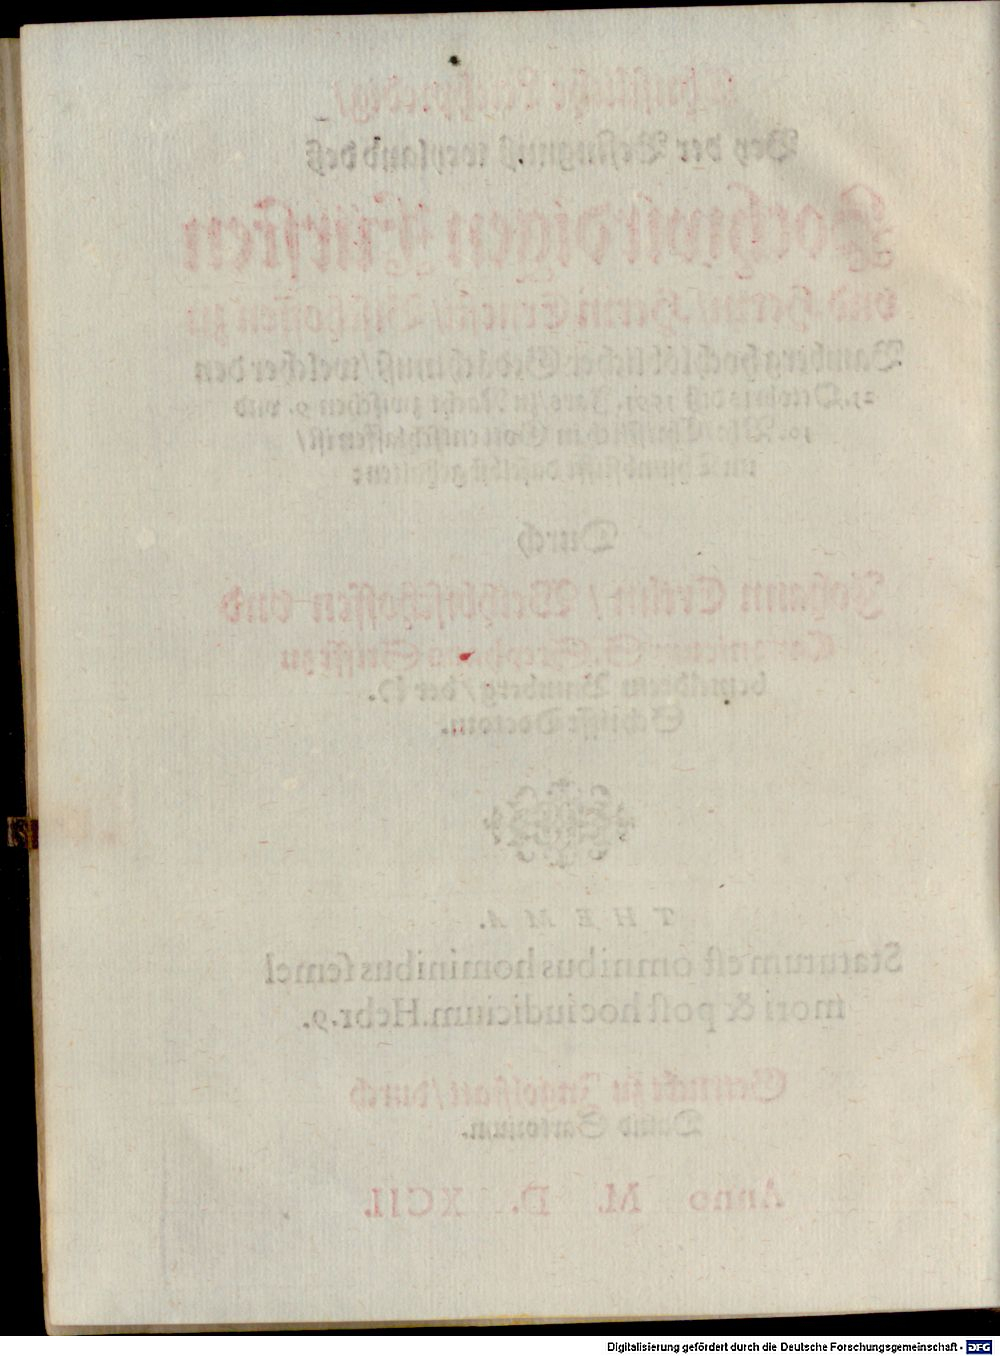 Christliche Leichpredig/
Bey der Besingnuß weyland deß
Hochwirdigen Fürsten
vnd Herrn/ Herrn Ernesti/ Bischoffen zu
Bamberg hochlöblicher Gedechtnuß/ welcher den
21. Octobris deß 1591. Jars/ zu Nacht zwischen 9. vnd
10. Vhr/ Christlich in Gott entschlaffen ist/
im Thumbstifft daselbst gehalten:
Durch
Johann Ertlin/ Weihbischoffen vnd
Canonicum S. Stephans Stiffts zu
bemeldtem Bamberg/ der H.
Schrifft Doctorn.
THEMA.
Statutum est omnibus hominibus semel
mori & post hoc iudicium. Hebr. 9.
Getruckt zu Ingolstatt/ durch
Dauid Sartorium.
Anno M. D. XCII.
Digitalisierung gefördert durch die Deutsche Forschungsgemeinschaft - DFG